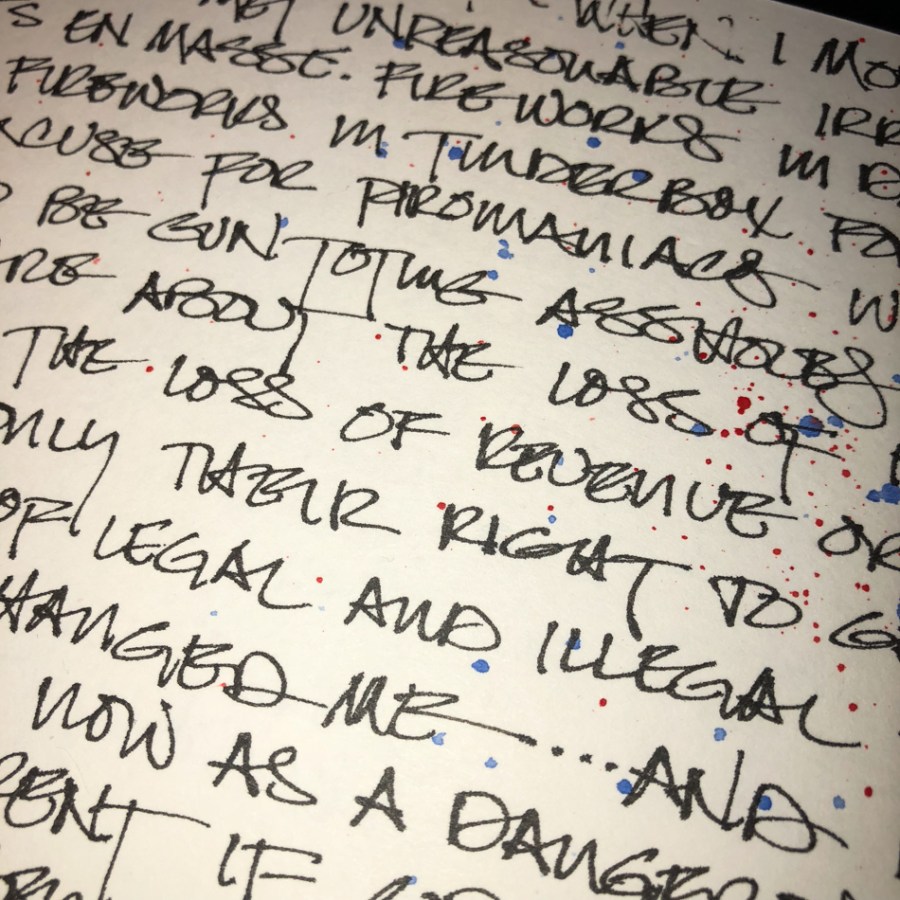 WHEN I MO
MET UNREASONABLE IRR
S EN MASSE. FIREWORKS IN D
FIREWORKS IN TINDERBOX FO
XCUSE FOR PIROMANIACS W
BE GUN TOTING ASSHOLES
RE ABOUT THE LOSS OF
THE LOSS OF REVENUE OR
ONLY THEIR RIGHT TO G
OF LEGAL AND ILLEGAL
HANGED ME —....AND
NOW AS A DANGER
ENT IF